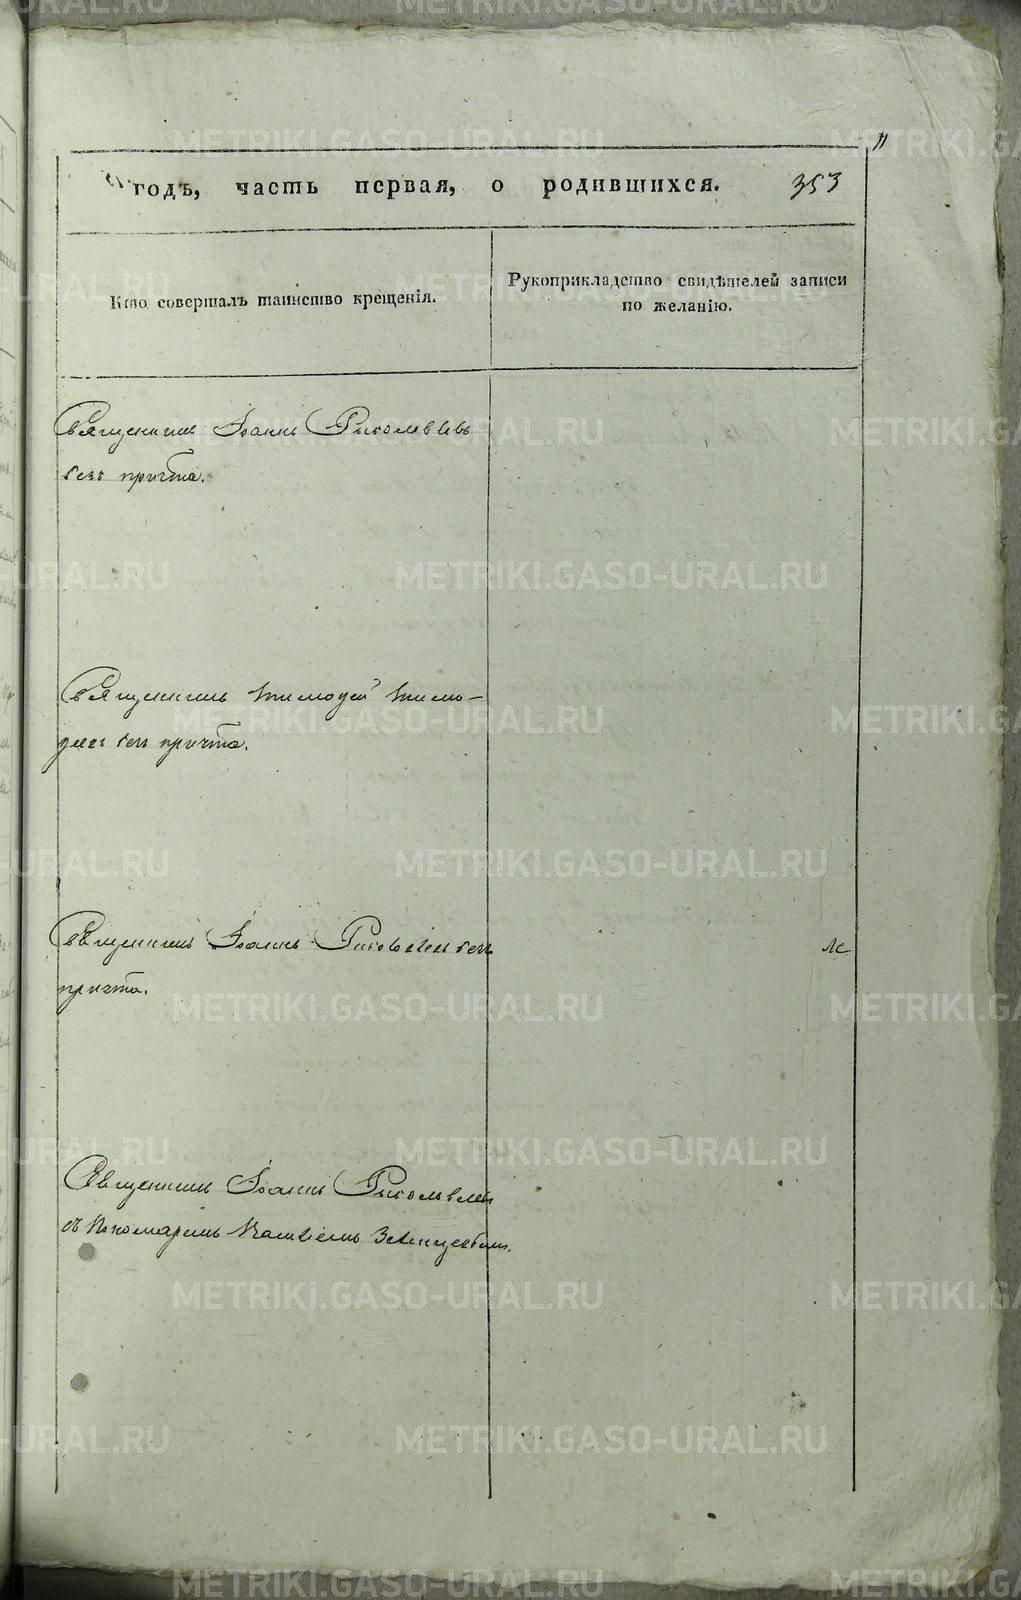 11
годъ, часть первая, о родившихся. 353
Кто совершалъ таинство крещенія.
Рукоприкладство свидѣтелей записи
по желанію.
Священникъ Іоаннъ
безъ причта.
Священникъ Тимоѳей Тимо-
безъ причта.
Священникъ Іоаннъ безъ
причта.
Священникъ Іоаннъ
съ Пономаремъ
METRIKI.GASO-URAL.RU